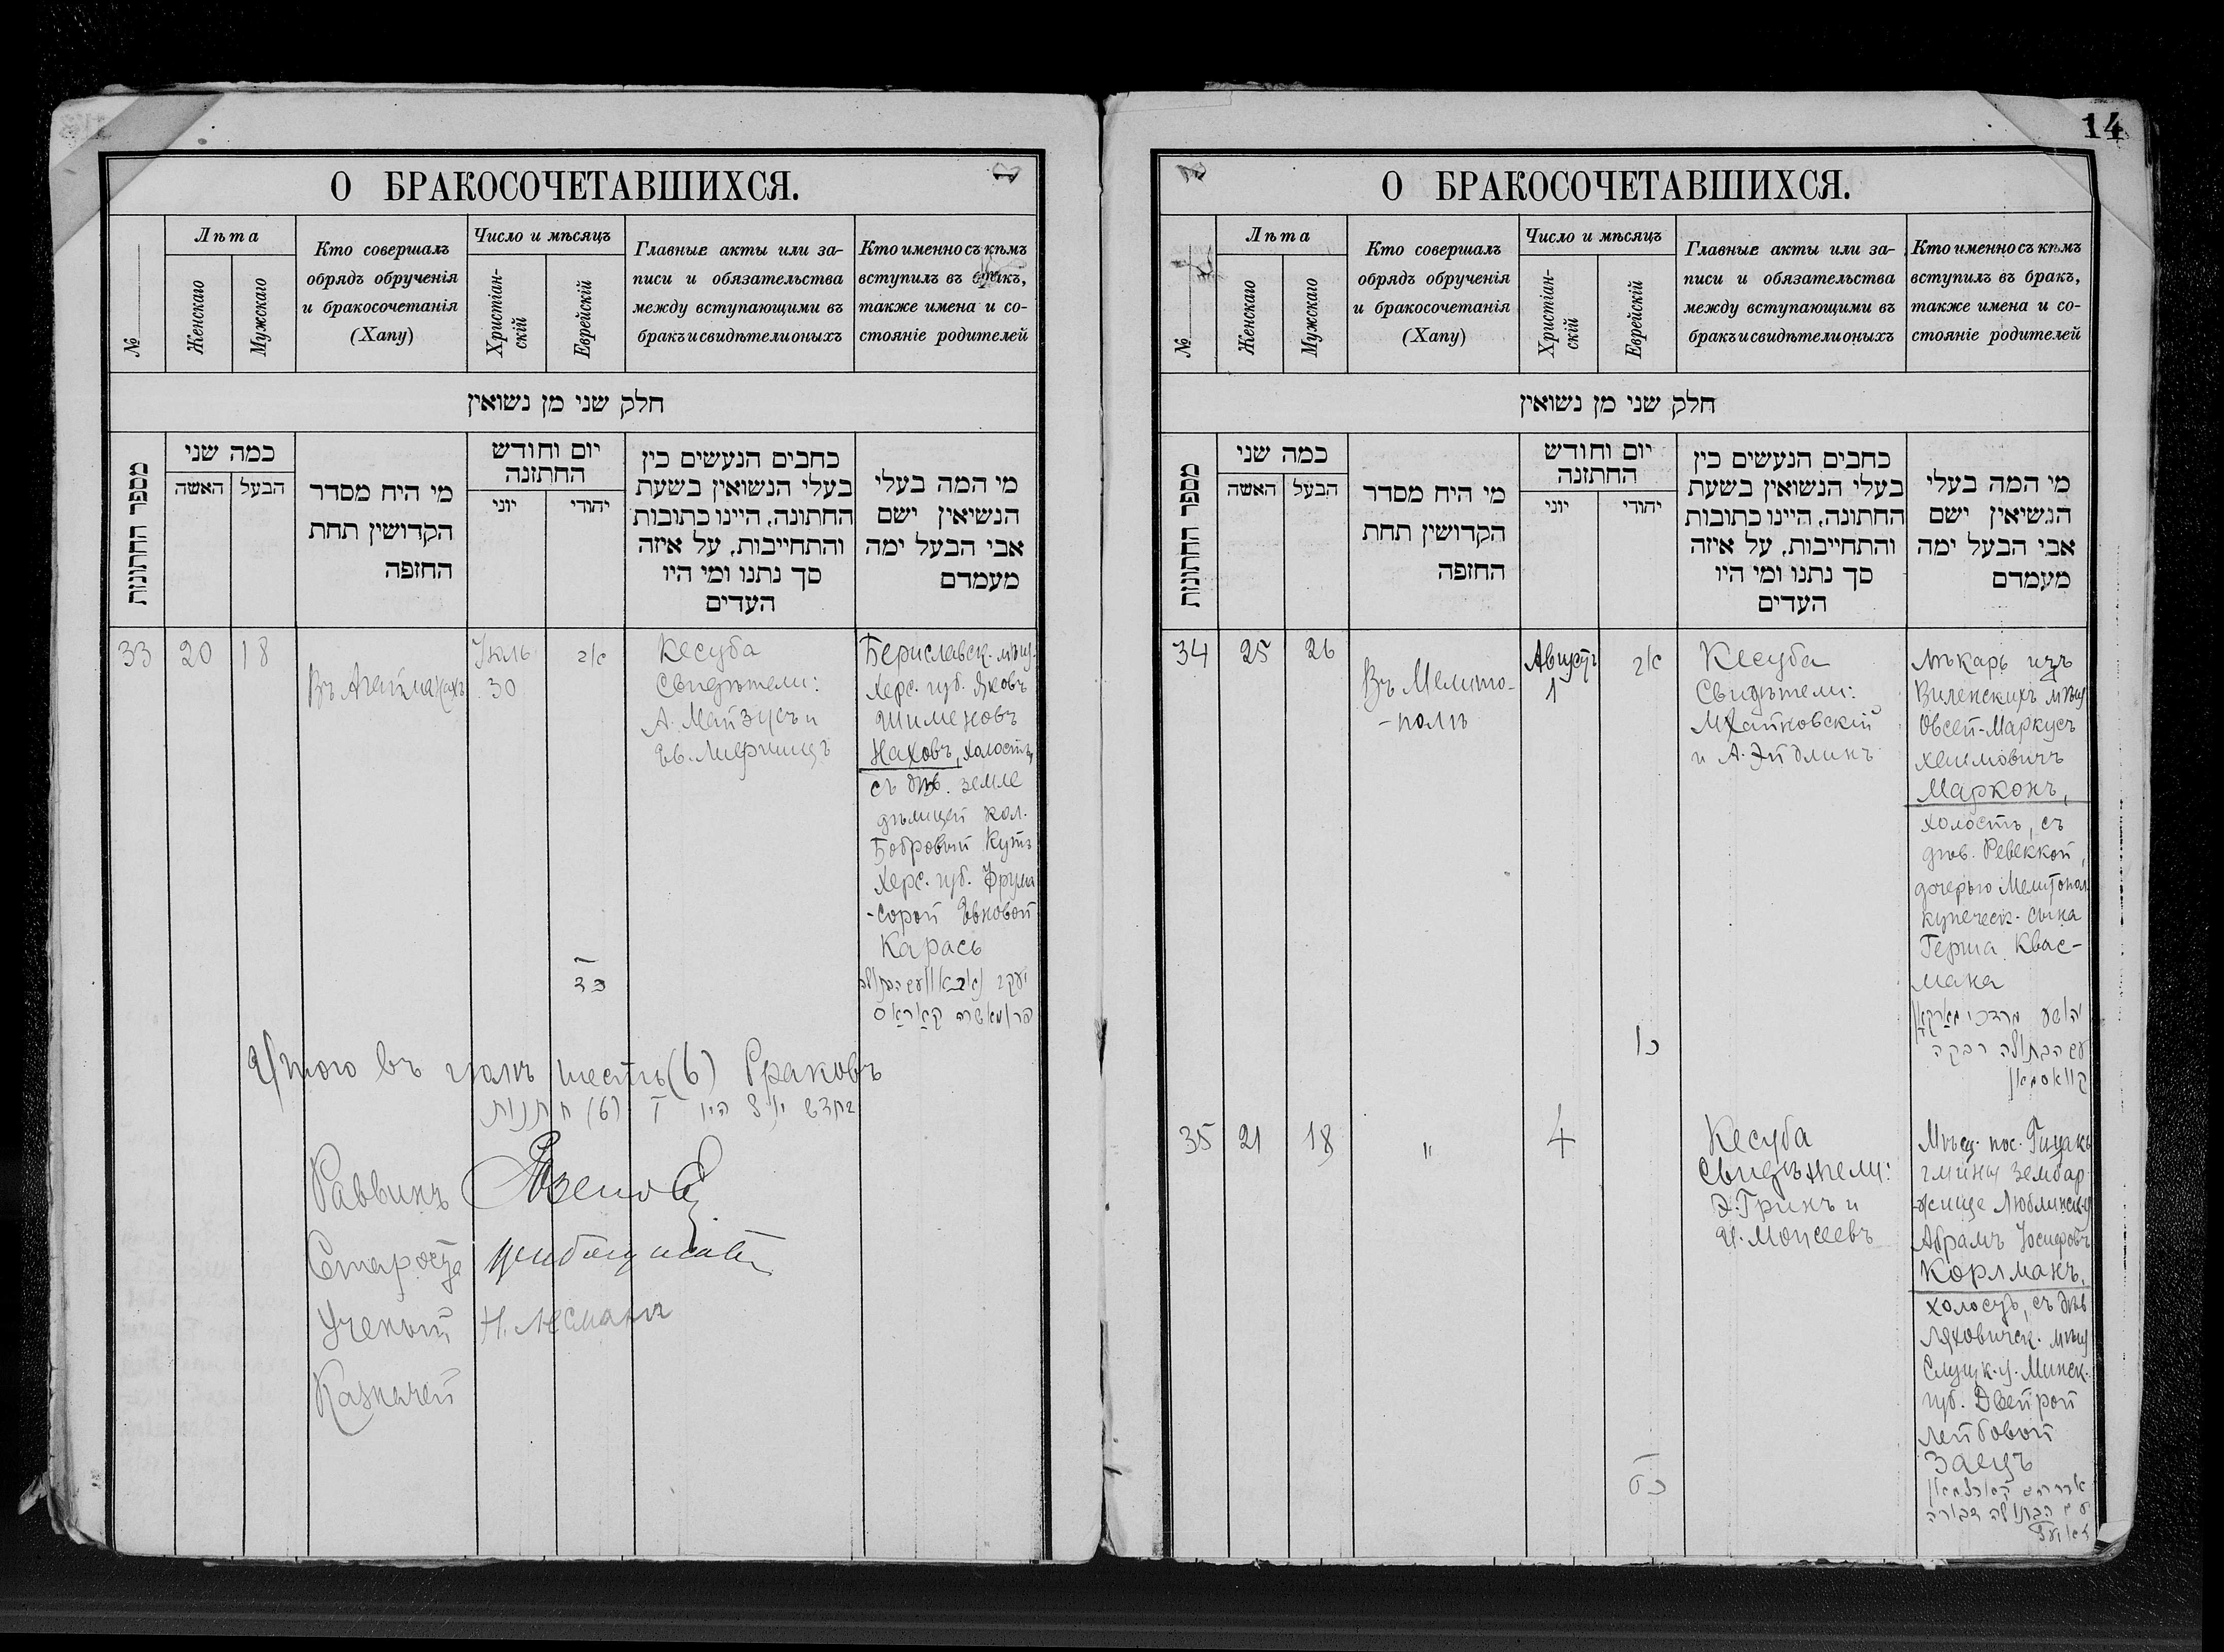 14
О БРАКОСОЧЕТАВШИХСЯ.
№
Лѣта
Женскаго
Мужскаго
Кто совершалъ
обрядъ обрученія
и бракосочетанія
(Хапу)
Число и мѣсяцъ
Христіан-
скій
Еврейскій
Главные акты или за-
писи и обязательства
между вступающими въ
бракъ и свидѣтели оныхъ
Кто именно съ кѣмъ
вступилъ въ бракъ,
также имена и со-
стояніе родителей
חלק שני מן נשואין
מספר החתונות
כמה שני
האשה
הבעל
מי היח מסדר
הקדושין תחת
החופה
יום וחודש
החתונה
יוני
יהודי
כחבים הנעשים כין
בעלי הנשואין בשעת
החתונה, היינו כתובות
והתחייבות, על איזה
סך נתנו ומי היו
העדים
מי המה בעלי
הנשיאין ישם
אבי הבעל ימה
מעמדם
33
20
18
Іюль
30
Кесуба
Свидѣтели:
А. Майзусъ и
Бериславск. мѣщ.
Херс. губ. Яковъ
Шименовъ
Наховъ, холостъ,
съ дѣв. земле
дѣлицей кол.
Бобровый Кутъ
Херс. губ. Фрума
-Сорой
Карась
כד
Итого въ шесть (6) браковъ
Раввинъ
Староста
Ученый Н. Лесманъ
Казначей
О БРАКОСОЧЕТАВШИХСЯ.
№
Лѣта
Женскаго
Мужскаго
Кто совершалъ
обрядъ обрученія
и бракосочетанія
(Хапу)
Число и мѣсяцъ
Христіан-
скій
Еврейскій
Главные акты или за-
писи и обязательства
между вступающими въ
бракъ и свидѣтели оныхъ
Кто именно съ кѣмъ
вступилъ въ бракъ,
также имена и со-
стояніе родителей
חלק שני מן נשואין
מספר החתונות
כמה שני
האשה
הבעל
מי היח מסדר
הקדושין תחת
החופה
יום וחודש
החתונה
יוני
יהודי
כחבים הנעשים כין
בעלי הנשואין בשעת
החתונה, היינו כתובות
והתחייבות, על איזה
סך נתנו ומי היו
העדים
מי המה בעלי
הנשיאין ישם
אבי הבעל ימה
מעמדם
34
25
26
Въ Мелито-
-полѣ
Августъ
1
כו
Кесуба
Свидѣтели:
и А. Эйдлинъ
Лѣкарь изъ
Виленскихъ мѣщ
Овсей-Маркусъ
Хаимовичъ
Марконъ,
холостъ, съ
дѣв. Ревеккой,
дочерью Мелитопол.
купеческ. сына
Герша Квас-
мана
יהושע מרדכי מארקאן
עם הבתולה רבקה
קוואסמאן
35
21
18
"
4
כט
Кесуба
Свидѣтели:
Э. Гринъ и
И. Моисеевъ
Мѣщ. пос.
гмины
Абрамъ Іосифовъ
Корлманъ,
холостъ, съ дѣв
Ляховичск. мѣщ
Слуцк. у. Минск.
губ. Двейрой
Лейбовой
Заецъ
אברהם קארלמאן
עם הבתולה דבורה
זאיעץ